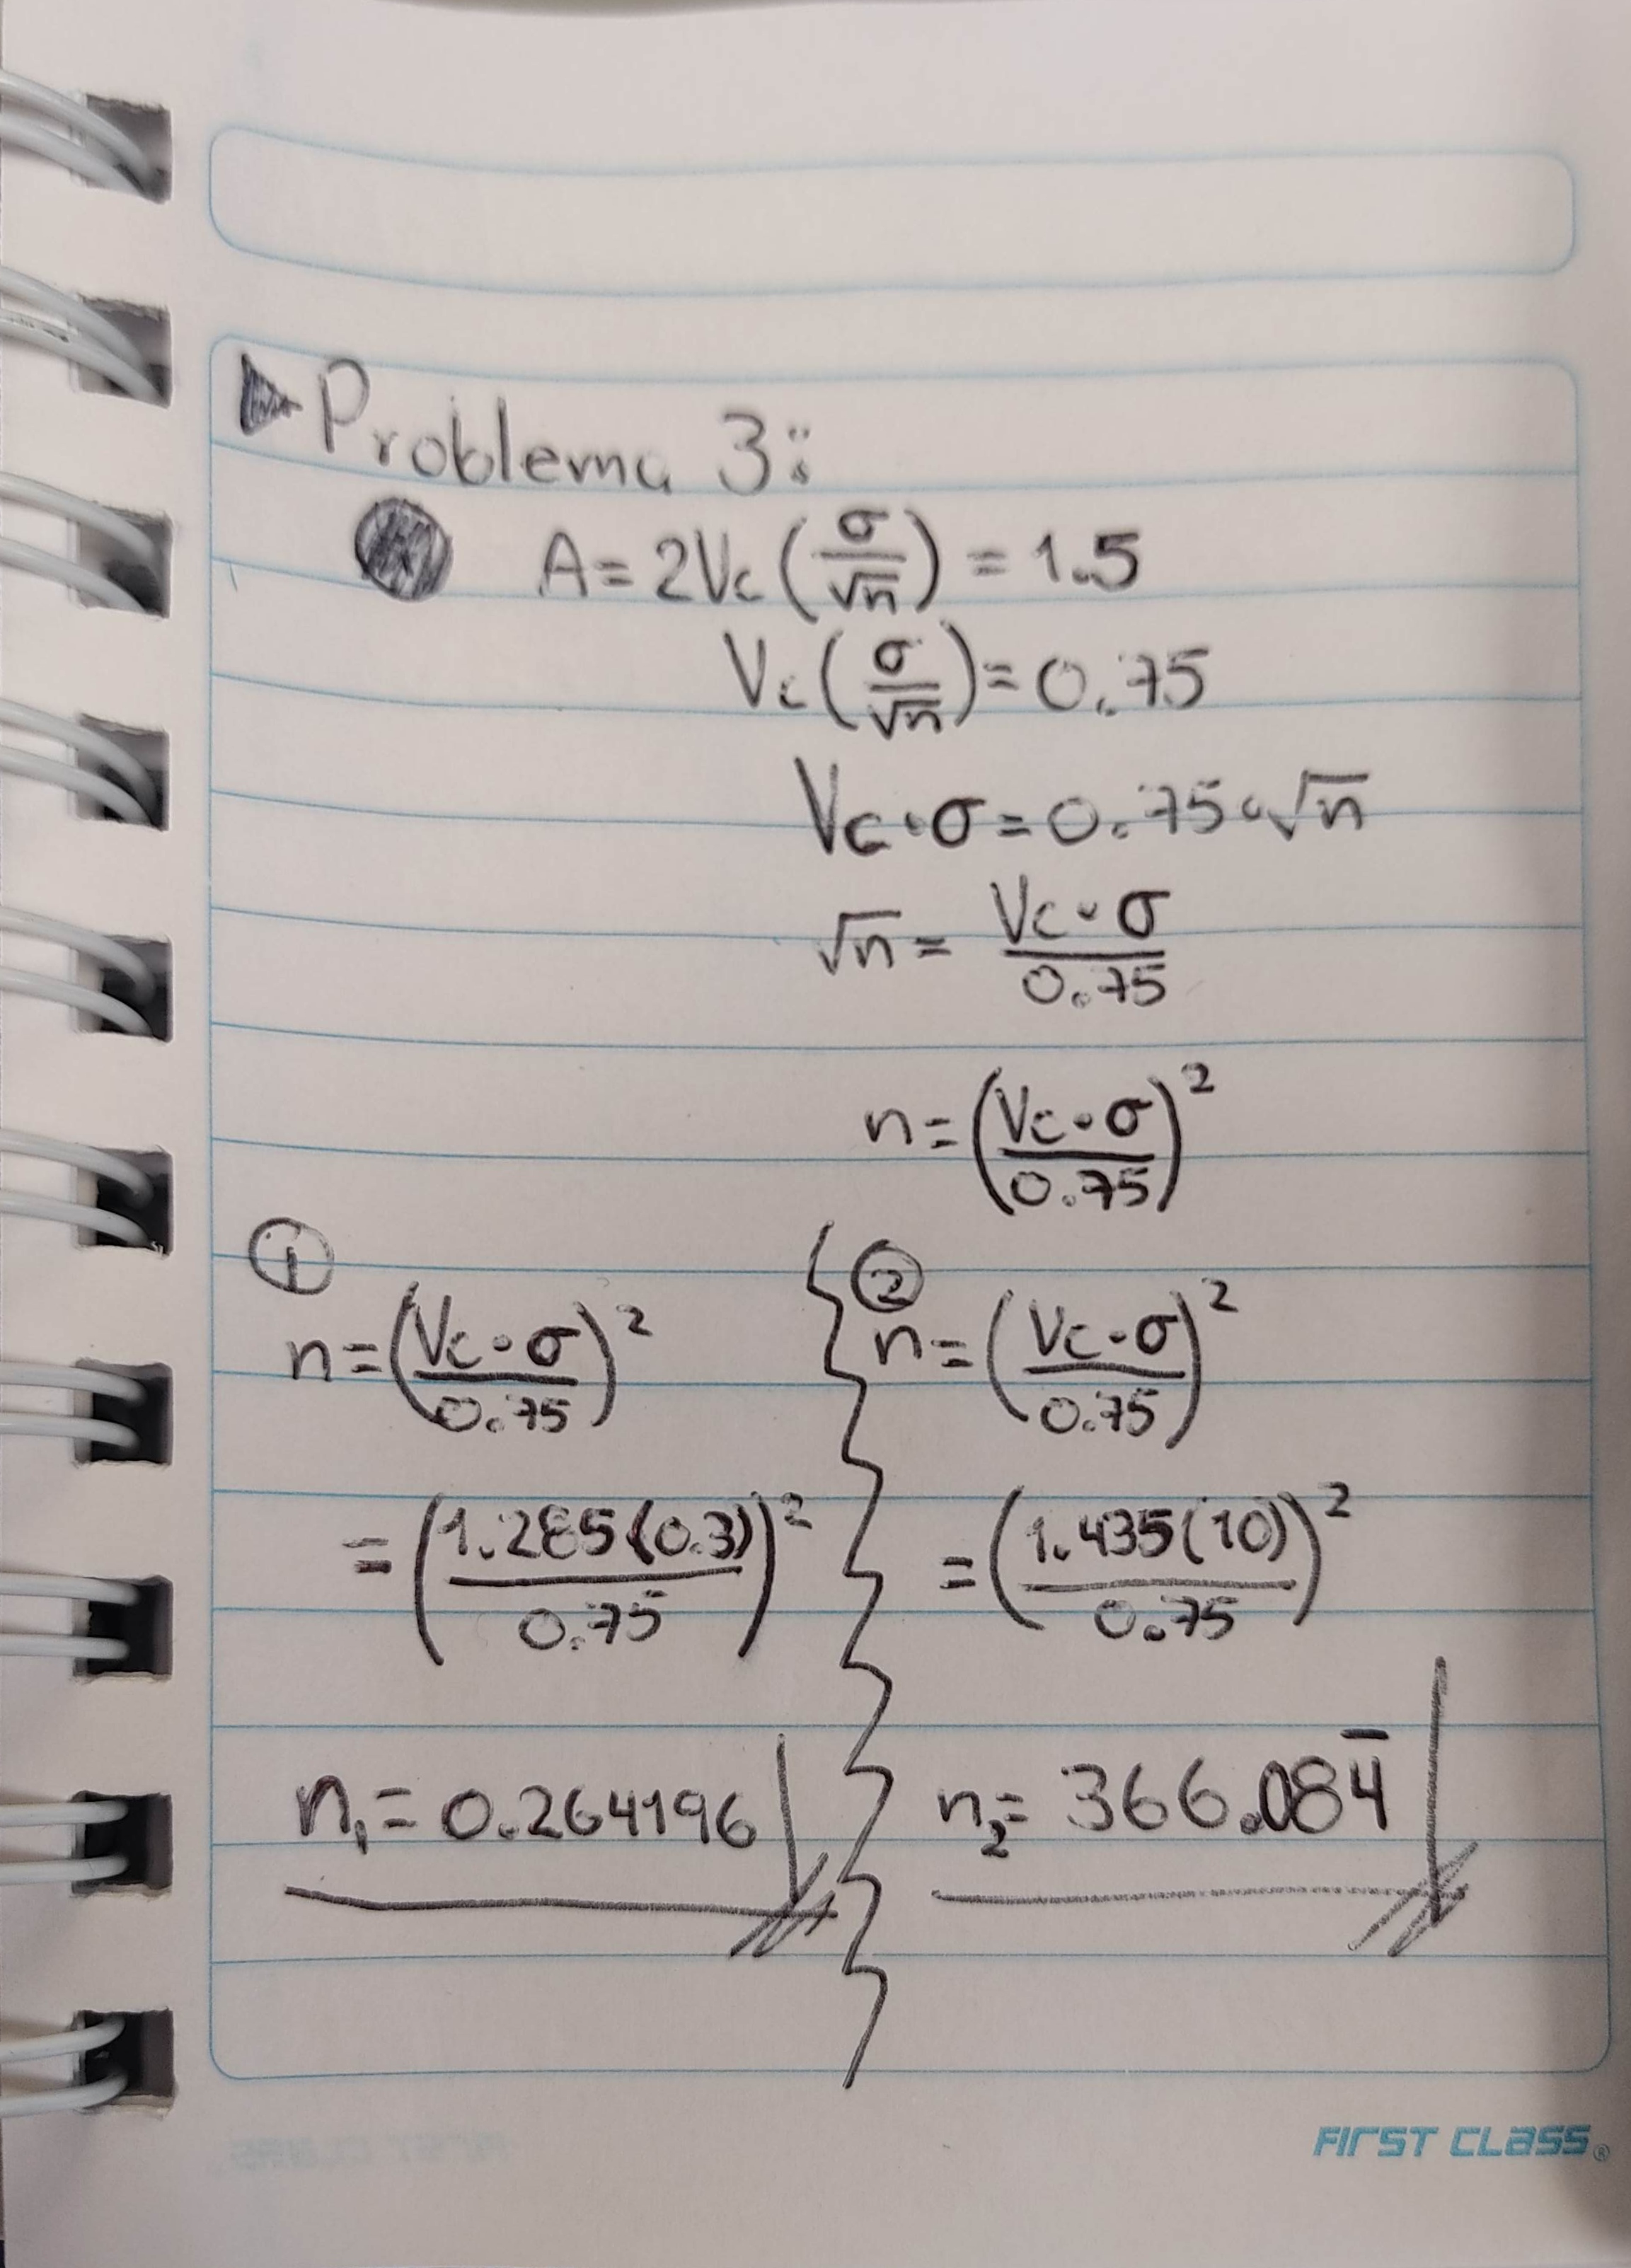 ▶Problema 3:
A = 2Vc (σ/√n) = 1.5
Vc (σ/√n) = 0.75
Vc · σ = 0.75 · √n
√n = Vc · σ / 0.75
n = (Vc · σ / 0.75)²
①
n = (Vc · σ / 0.75)²
= (1.285(0.3) / 0.75)²
n₁ = 0.264196
②
n = (Vc · σ / 0.75)²
= (1.435(10) / 0.75)²
n₂ = 366.084̅
FIRST CLASS®